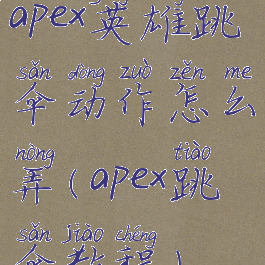 apex英雄跳
sǎn dòng zuò zěn me
伞动作怎么
nòng tiào
弄（apex跳
sǎn jiào chéng
伞教程）